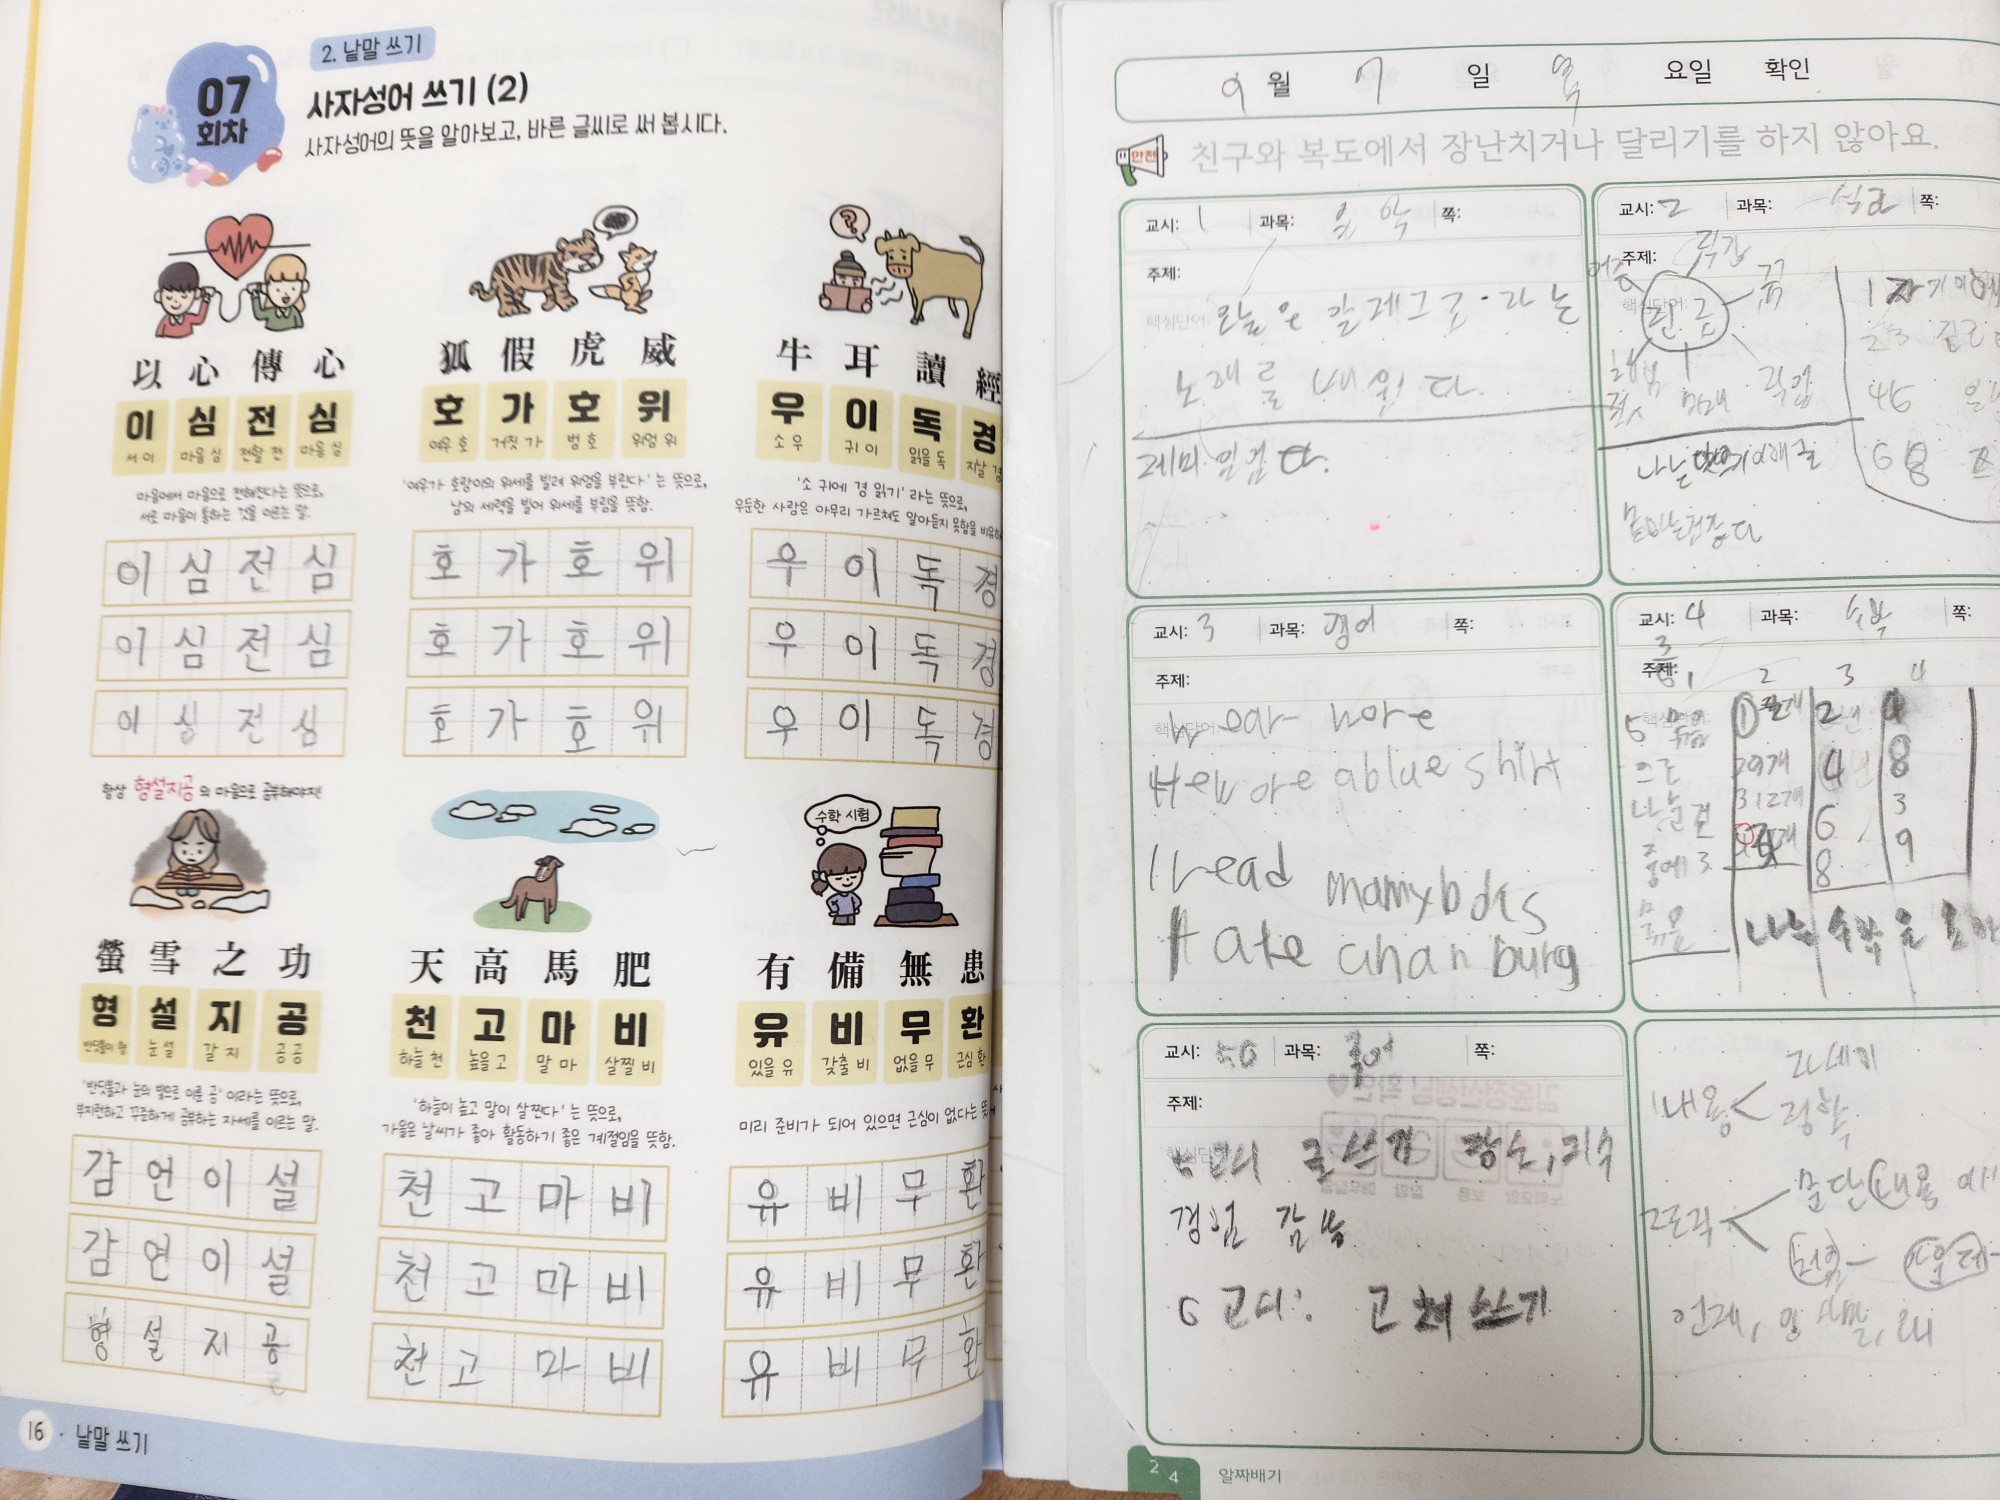 2. 낱말 쓰기
07
회차
사자성어 쓰기 (2)
사자성어의 뜻을 알아보고, 바른 글씨로 써 봅시다.
以 心 傳 心
이 심 전 심
써 이 마음 심 전할 전 마음 심
마음에서 마음으로 전해진다는 뜻으로,
서로 마음이 통하는 것을 이르는 말.
이 심 전 심
이 심 전 심
이 심 전 심
狐 假 虎 威
호 가 호 위
여우 호 거짓 가 범 호 위엄 위
'여우가 호랑이의 위세를 빌려 위엄을 부린다' 는 뜻으로,
남의 세력을 빌어 위세를 부림을 뜻함.
호 가 호 위
호 가 호 위
호 가 호 위
?
牛 耳 讀 經
우 이 독 경
소 우 귀 이 읽을 독 지날 경
'소 귀에 경 읽기' 라는 뜻으로,
우둔한 사람은 아무리 가르쳐도 알아듣지 못함을 비유
우 이 독 경
우 이 독 경
우 이 독 경
항상 형설지공의 마음으로 공부해야지!
螢 雪 之 功
형 설 지 공
반딧불이 형 눈 설 갈 지 공 공
'반딧불과 눈의 빛으로 이룬 공' 이라는 뜻으로,
부지런하고 꾸준하게 공부하는 자세를 이르는 말.
감 언 이 설
감 언 이 설
형 설 지 공
天 高 馬 肥
천 고 마 비
하늘 천 높을 고 말 마 살찔 비
'하늘이 높고 말이 살찐다' 는 뜻으로,
가을은 날씨가 좋아 활동하기 좋은 계절임을 뜻함.
천 고 마 비
천 고 마 비
천 고 마 비
수학 시험
有 備 無 患
유 비 무 환
있을 유 갖출 비 없을 무 근심 환
미리 준비가 되어 있으면 근심이 없다는 뜻
유 비 무 환
유 비 무 환
유 비 무 환
16 · 낱말 쓰기
9 월 7 일 요일 확인
안전
친구와 복도에서 장난치거나 달리기를 하지 않아요.
교시: 1 과목: 음악 쪽:
주제:
핵심단어:
오늘은 칼레그로·라는
노래를 배웠다.
재미있었다.
교시: 2 과목: 쪽:
주제:
핵심단어:
꿈
미래 직업
나는
교시: 3 과목: 영어 쪽:
주제:
핵심단어:
wear wore
He wore a blue shirt
I read many books
I ate a hanburg
교시: 4 과목: 수학 쪽:
주제:
핵심단어:
1 2 3 4
5 묶음
으로
나눈 것
중에 3
묶음
2 4 6 8
4 8 3 9
나는 수학을
교시: 과목: 국어 쪽:
주제:
핵심단어:
글쓰기 장소,
경험
6 교시: 고쳐쓰기
내용
언제,
24
알짜배기